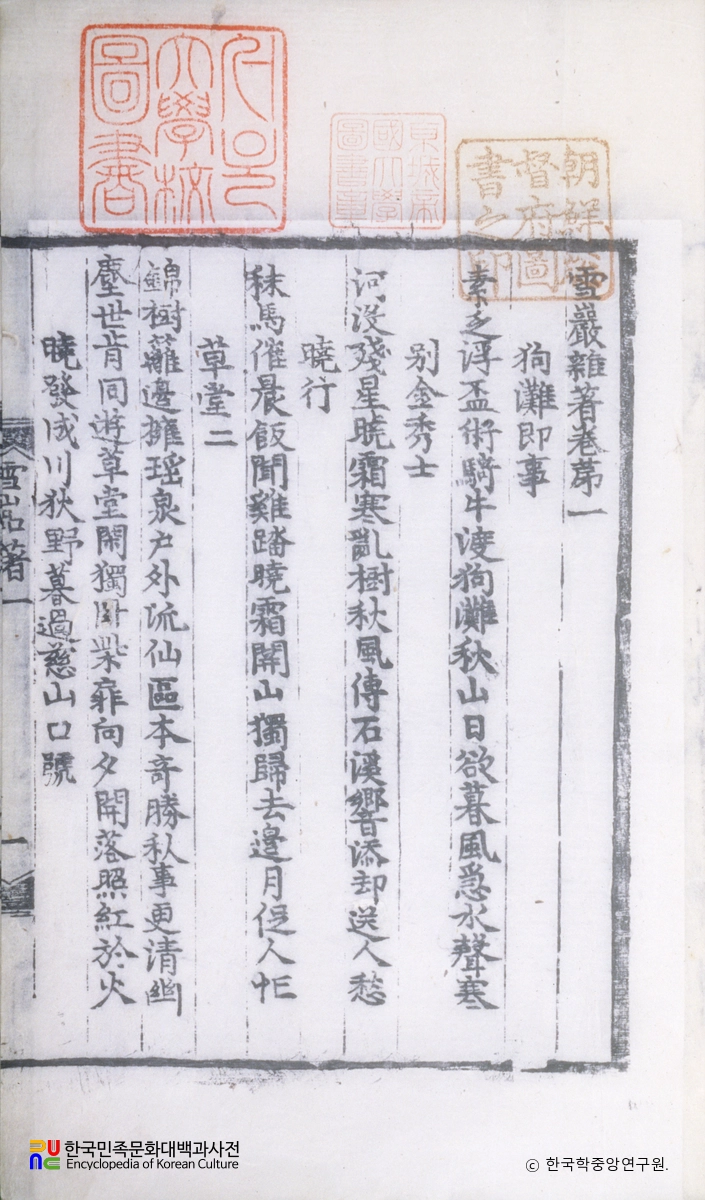 雪巖雜著卷苐一
狗灘即事
素乏浮盃術騎牛渡狗灘秋山日欲暮風急水聲寒
別金秀士
河没殘星曉霜寒亂樹秋風傳石溪響添却送人愁
曉行
秣馬催晨飯聞雞踏曉霜關山獨歸去邊月促人忙
草堂二
錦樹蘺邊擁瑶泉户外流仙區本奇勝秋事更清幽
塵世肯同遊草堂閑獨卧柴扉向夕開落照紅於火
曉發成川狄野暮過慈山口號
雪嵓著一
一
朝鮮總督府圖書之印
東城帝國大學圖書章
서울大學校圖書
한국민족문화대백과사전
Encyclopedia of Korean Culture
© 한국학중앙연구원.